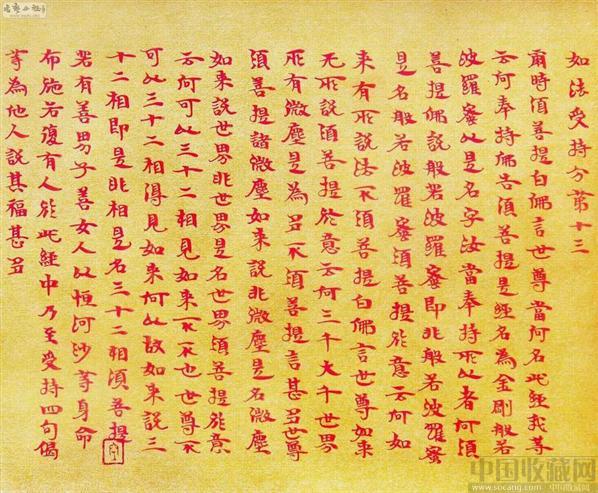 如法受持分第十三
爾時須菩提白佛言世尊當何名此經我等
云何奉持佛告須菩提是經名為金剛般若
波羅蜜以是名字汝當奉持所以者何須
菩提佛說般若波羅蜜即非般若波羅蜜
是名般若波羅蜜須菩提於意云何如
來有所說法不須菩提白佛言世尊如來
无所說須菩提於意云何三千大千世界
所有微塵是為多不須菩提言甚多世尊
須菩提諸微塵如來說非微塵是名微塵
如來說世界非世界是名世界須菩提於意
云何可以三十二相見如來不不也世尊不
可以三十二相得見如來何以故如來說三
十二相即是非相是名三十二相須菩提
若有善男子善女人以恒河沙等身命
布施若復有人於此經中乃至受持四句偈
等為他人說其福甚多
中国收藏网
www.socang.com 中国收藏网